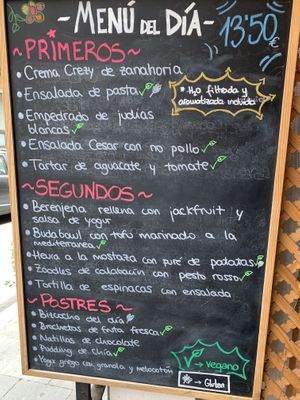 - MENÚ DEL DÍA -
13'50€
~ PRIMEROS ~
• Crema Crezy de zanahoria
• Ensalada de pasta
• H₂O filtrada y
aromatizada incluida
• Empedrado de judías
blancas
• Ensalada Cesar con no pollo
• Tartar de aguacate y tomate
~ SEGUNDOS ~
• Berenjena rellena con jackfruit y
salsa de yogur
• Budabowl con tofu marinado a la
mediterranea
• Heura a la mostaza con puré de patatas
• Zoodles de calabacín con pesto rosso
• Tortilla de espinacas con ensalada
~ POSTRES ~
• Bizcocho del día
• Brochetas de fruta fresca
• Natillas de chocolate
• Pudding de Chía
• Yogur griego con granola y melocotón
→ Vegano
→ Gluten